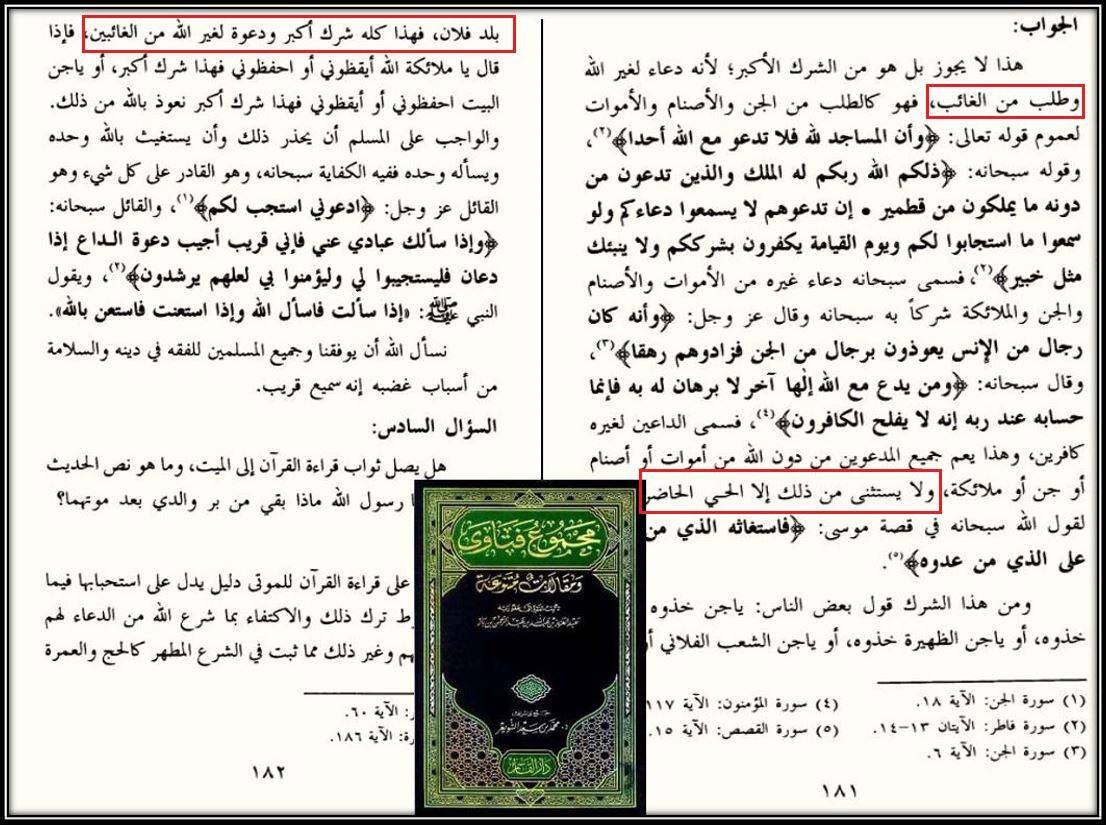 الجواب:
هذا لا يجوز بل هو من الشرك الأكبر؛ لأنه دعاء لغير الله
وطلب من الغائب، فهو كالطلب من الجن والأصنام والأموات
لعموم قوله تعالى: ﴿وأن المساجد لله فلا تدعو مع الله أحدا﴾(٢)،
وقوله سبحانه: ﴿ذلكم الله ربكم له الملك والذين تدعون من
دونه ما يملكون من قطمير • إن تدعوهم لا يسمعوا دعاءكم ولو
سمعوا ما استجابوا لكم ويوم القيامة يكفرون بشرككم ولا ينبئك
مثل خبير﴾(٢)، فسمى سبحانه دعاء غيره من الأموات والأصنام
والجن والملائكة شركاً به سبحانه وقال عز وجل: ﴿وأنه كان
رجال من الإنس يعوذون برجال من الجن فزادوهم رهقا﴾(٣)،
وقال سبحانه: ﴿ومن يدع مع الله إلها آخر لا برهان له به فإنما
حسابه عند ربه إنه لا يفلح الكافرون﴾(٤)، فسمى الداعين لغيره
كافرين، وهذا يعم جميع المدعوين من دون الله من أموات أو أصنام
أو جن أو ملائكة، ولا يستثنى من ذلك إلا الحي الحاضر
لقول الله سبحانه في قصة موسى: ﴿فاستغاثه الذي من
على الذي من عدوه﴾(٥).
ومن هذا الشرك قول بعض الناس: ياجن خذوه
خذوه، أو ياجن الظهيرة خذوه، أو ياجن الشعب الفلاني
(١) سورة الجن: الآية ١٨.
(٢) سورة فاطر: الآيتان ١٣-١٤.
(٣) سورة الجن: الآية ٦.
(٤) سورة المؤمنون: الآية ١١٧
(٥) سورة القصص: الآية ١٥.
١٨١
بلد فلان، فهذا كله شرك أكبر ودعوة لغير الله من الغائبين، فإذا
قال يا ملائكة الله أيقظوني أو احفظوني فهذا شرك أكبر، أو ياجن
البيت احفظوني أو أيقظوني فهذا شرك أكبر نعوذ بالله من ذلك.
والواجب على المسلم أن يحذر ذلك وأن يستغيث بالله وحده
ويسأله وحده ففيه الكفاية سبحانه، وهو القادر على كل شيء وهو
القائل عز وجل: ﴿ادعوني استجب لكم﴾(١)، والقائل سبحانه:
﴿وإذا سألك عبادي عني فإني قريب أجيب دعوة الداع إذا
دعان فليستجيبوا لي وليؤمنوا بي لعلهم يرشدون﴾(٢)، ويقول
النبي ﷺ: «إذا سألت فاسأل الله وإذا استعنت فاستعن بالله».
نسأل الله أن يوفقنا وجميع المسلمين للفقه في دينه والسلامة
من أسباب غضبه إنه سميع قريب.
السؤال السادس:
هل يصل ثواب قراءة القرآن إلى الميت، وما هو نص الحديث
رسول الله ماذا بقي من بر والدي بعد موتهما؟
على قراءة القرآن للموتى دليل يدل على استحبابها فيما
ترك ذلك والاكتفاء بما شرع الله من الدعاء لهم
وغير ذلك مما ثبت في الشرع المطهر كالحج والعمرة
الآية ٦٠.
الآية ١٨٦.
١٨٢
مجموع فتاوى
ومقالات متنوعة
د. محمد بن سعد الشويعر
دار القاسم